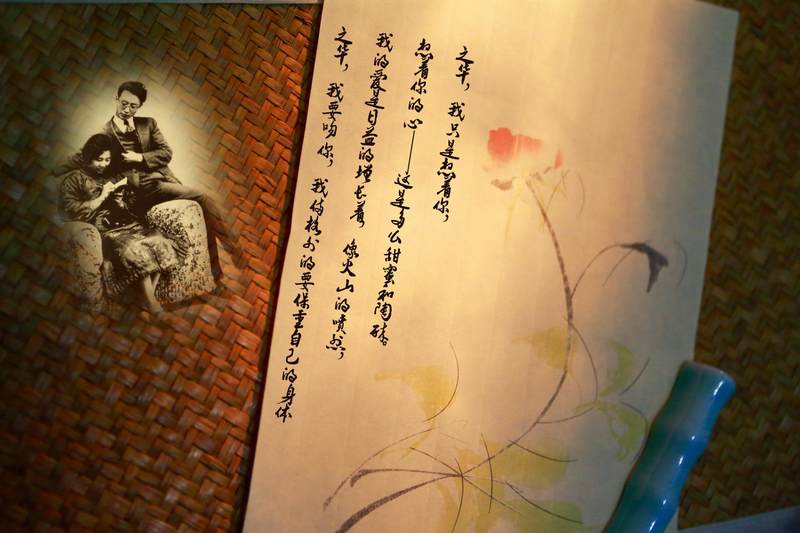 之华，我只是想着你，
想着你的心——这是多么甜蜜和陶醉。
我的爱是日益的增长着，像火山的喷然，
之华，我要吻你，我俩格外的要保重自己的身体